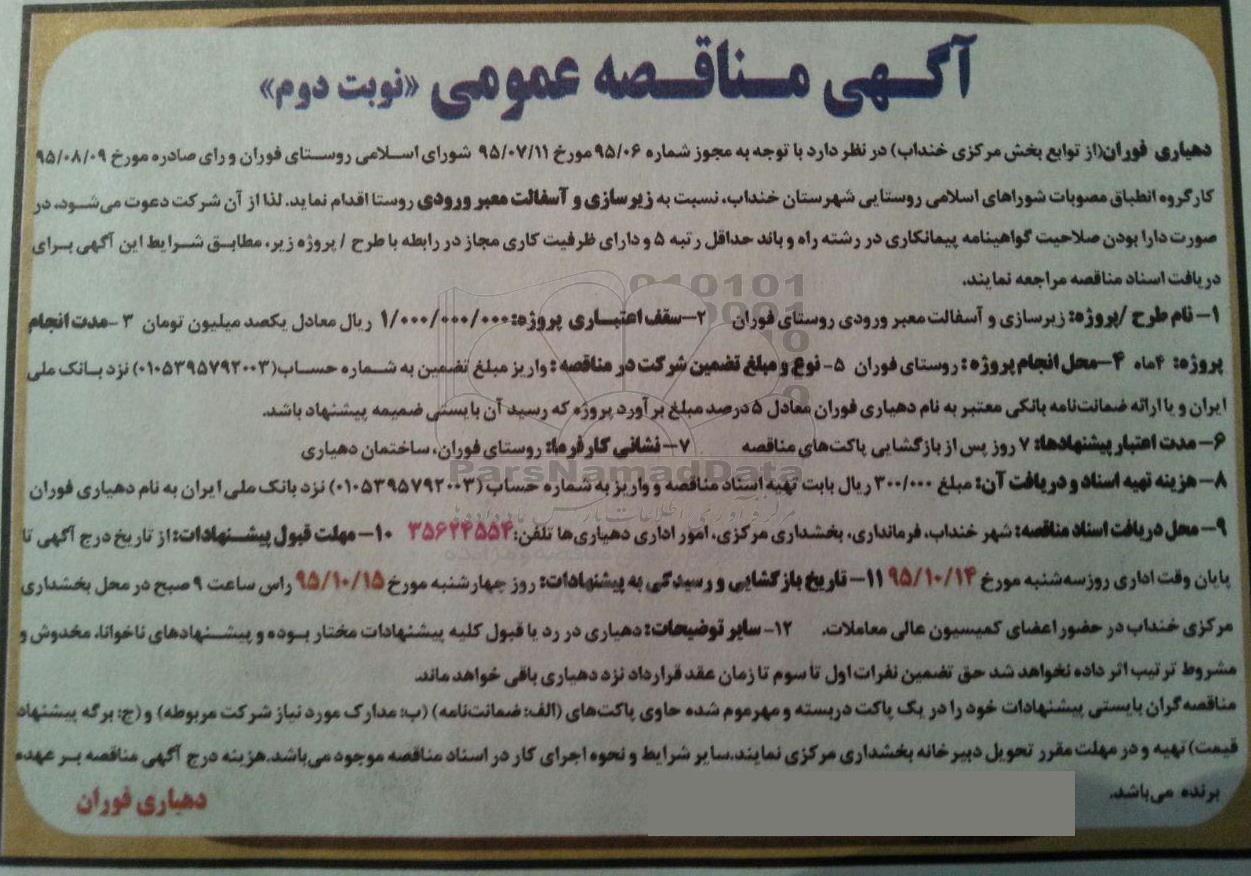 آگهی مناقصه عمومی «نوبت دوم»
دهیاری فوران(از توابع بخش مرکزی خنداب) در نظر دارد با توجه به مجوز شماره ۹۵/۰۶ مورخ ۹۵/۰۷/۱۱ شورای اسلامی روستای فوران و رای صادره مورخ ۹۵/۰۸/۰۹
کارگروه انطباق مصوبات شوراهای اسلامی روستایی شهرستان خنداب، نسبت به زیرسازی و آسفالت معبر ورودی روستا اقدام نماید. لذا از آن شرکت دعوت می‌شود، در
صورت دارا بودن صلاحیت گواهینامه پیمانکاری در رشته راه و باند حداقل رتبه ۵ و دارای ظرفیت کاری مجاز در رابطه با طرح / پروژه زیر، مطابق شرایط این آگهی برای
دریافت اسناد مناقصه مراجعه نمایند.
۱- نام طرح /پروژه: زیرسازی و آسفالت معبر ورودی روستای فوران ۲-سقف اعتباری پروژه: ۱/۰۰۰/۰۰۰/۰۰۰ ریال معادل یکصد میلیون تومان ۳ -مدت انجام
پروژه: ۴ماه ۴-محل انجام پروژه: روستای فوران ۵- نوع و مبلغ تضمین شرکت در مناقصه: واریز مبلغ تضمین به شماره حساب(۰۱۰۵۳۹۵۷۹۲۰۰۳) نزد بانک ملی
ایران و یا ارائه ضمانت‌نامه بانکی معتبر به نام دهیاری فوران معادل ۵ درصد مبلغ برآورد پروژه که رسید آن بایستی ضمیمه پیشنهاد باشد.
۶- مدت اعتبار پیشنهادها: ۷ روز پس از بازگشایی پاکت‌های مناقصه ۷- نشانی کارفرما: روستای فوران، ساختمان دهیاری
ParsNamadData
۸- هزینه تهیه اسناد و دریافت آن: مبلغ ۳۰۰/۰۰۰ ریال بابت تهیه اسناد مناقصه و واریز به شماره حساب (۰۱۰۵۳۹۵۷۹۲۰۰۳) نزد بانک ملی ایران به نام دهیاری فوران
۹- محل دریافت اسناد مناقصه: شهر خنداب، فرمانداری، بخشداری مرکزی، امور اداری دهیاری‌ها تلفن: ۳۵۶۲۴۵۵۴ ۱۰- مهلت قبول پیشنهادات: از تاریخ درج آگهی تا
پایان وقت اداری روز سه‌شنبه مورخ ۹۵/۱۰/۱۴ ۱۱- تاریخ بازگشایی و رسیدگی به پیشنهادات: روز چهارشنبه مورخ ۹۵/۱۰/۱۵ راس ساعت ۹ صبح در محل بخشداری
مرکزی خنداب در حضور اعضای کمیسیون عالی معاملات. ۱۲- سایر توضیحات: دهیاری در رد یا قبول کلیه پیشنهادات مختار بوده و پیشنهادهای ناخوانا، مخدوش و
مشروط ترتیب اثر داده نخواهد شد حق تضمین نفرات اول تا سوم تا زمان عقد قرارداد نزد دهیاری باقی خواهد ماند.
مناقصه‌گران بایستی پیشنهادات خود را در یک پاکت دربسته و مهرموم شده حاوی پاکت‌های (الف: ضمانت‌نامه) (ب: مدارک مورد نیاز شرکت مربوطه) و (ج: برگه پیشنهاد
قیمت) تهیه و در مهلت مقرر تحویل دبیرخانه بخشداری مرکزی نمایند.سایر شرایط و نحوه اجرای کار در اسناد مناقصه موجود می‌باشد.هزینه درج آگهی مناقصه بر عهده
برنده می‌باشد.
دهیاری فوران